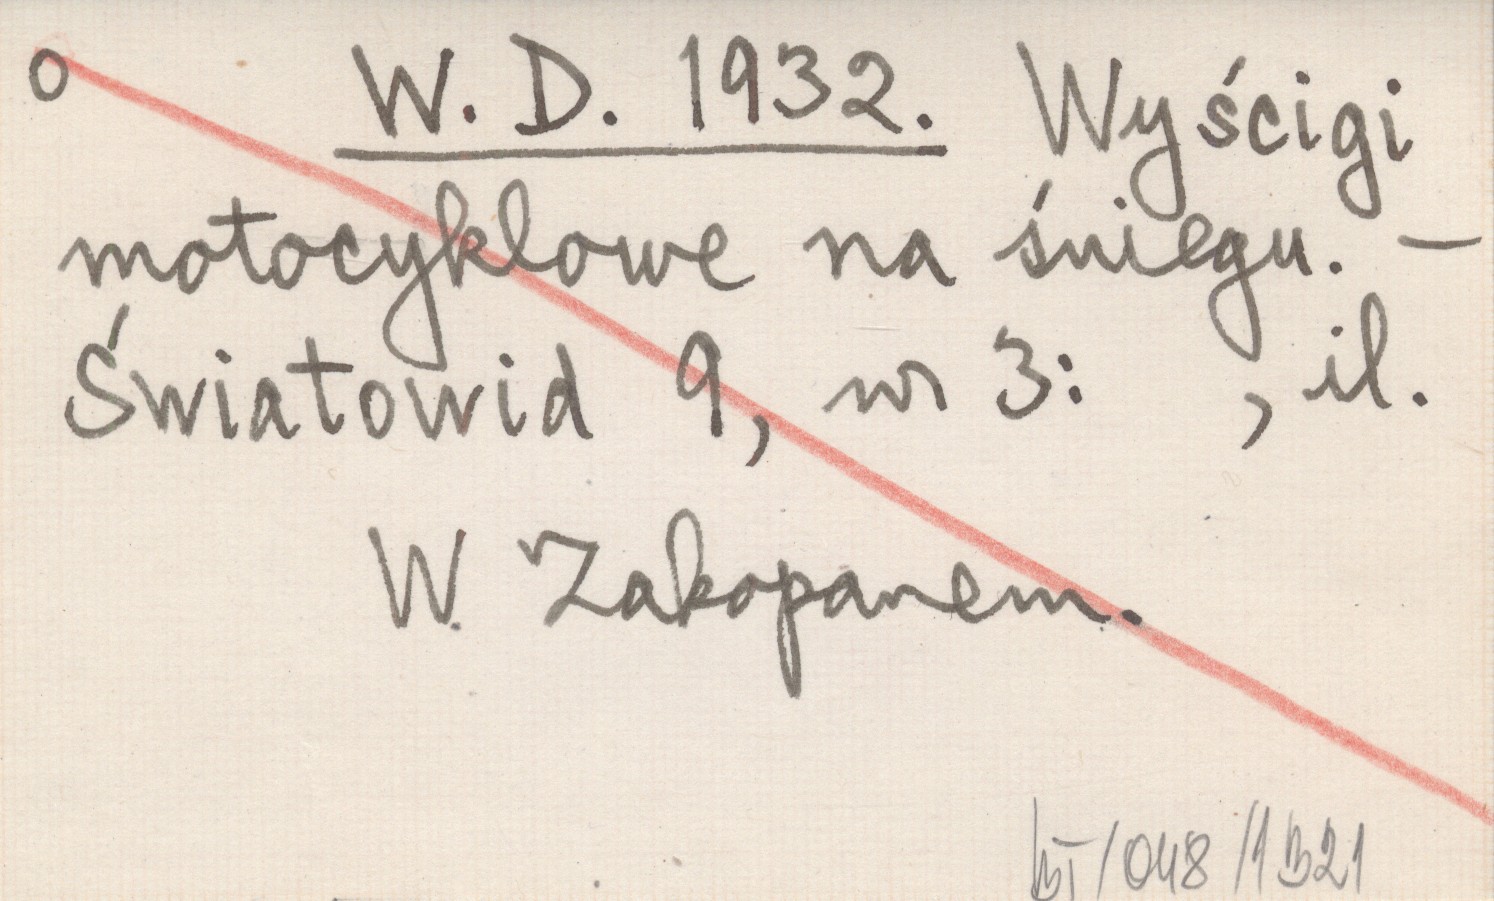 o W. D. 1932. Wyścigi
motocyklowe na śniegu. —
Światowid 9, nr 3: , il.
W Zakopanem.
/048/1321